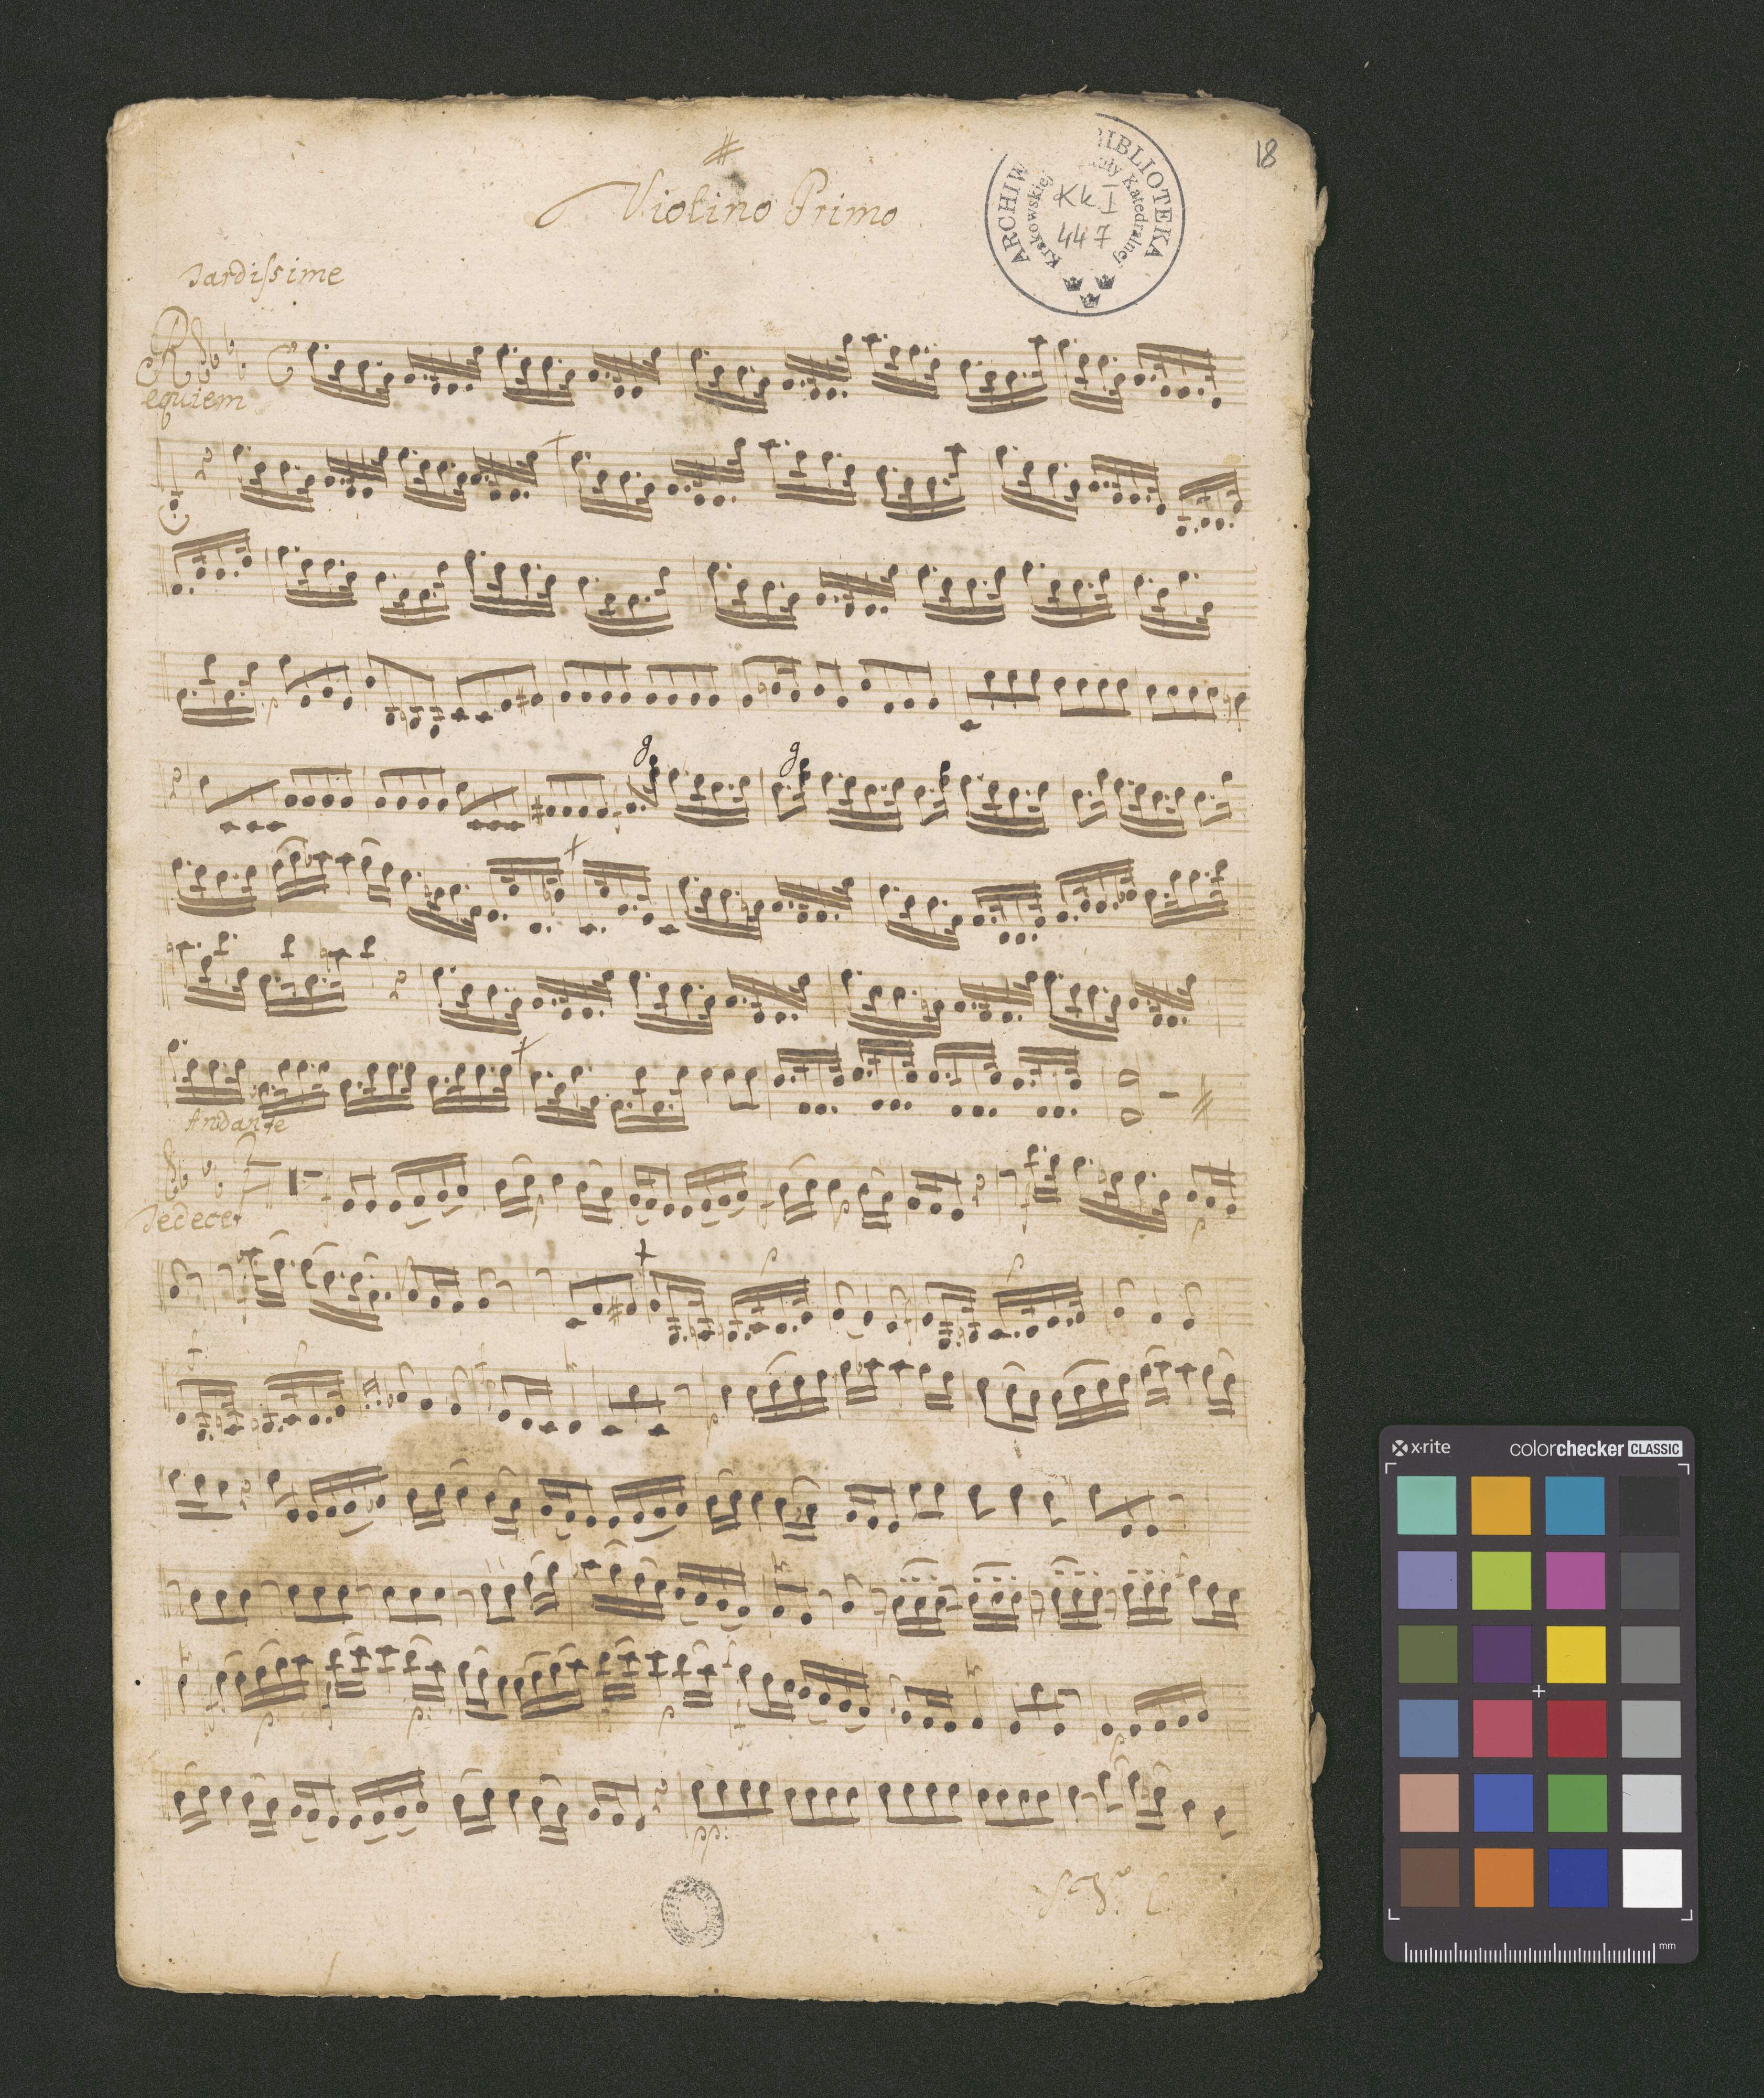 18
Violino Primo
ARCHIWUM I BIBLIOTEKA
Krakowskiej Kapituły Katedralnej
Kk I
447
Tardissime
Requiem
g
g
Andante
Te decet
pp:
x-rite
colorchecker CLASSIC
mm